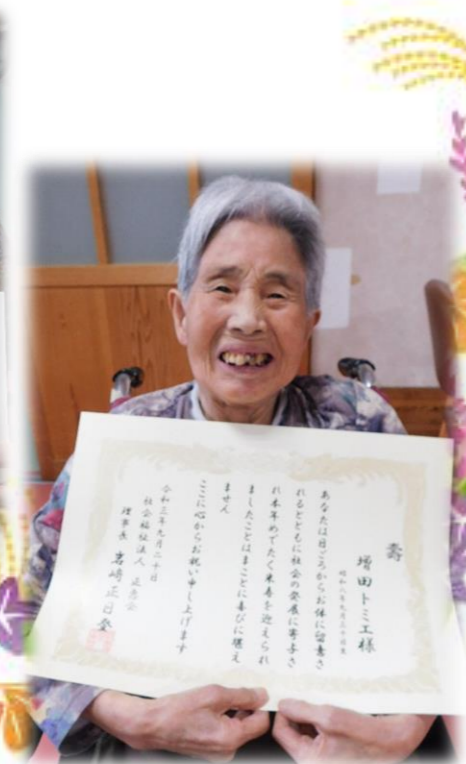 壽
増田トミ工様
昭和八年九月二十日生
あなたは日ごろからお体に留意さ
れるとともに社会の発展に寄与さ
れ本年めでたく米寿を迎えられ
ましたことはまことに喜びに堪え
ません
ここに心からお祝い申し上げます
令和三年九月二十日
社会福祉法人
理事長